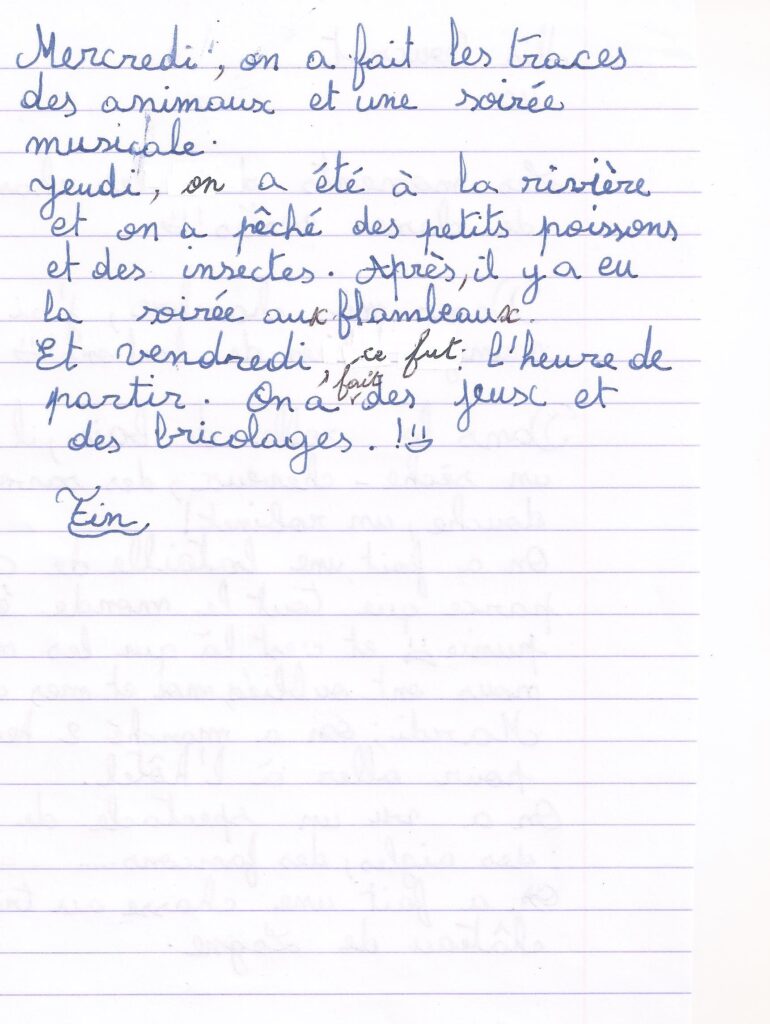 Mercredi, on a fait les traces
des animaux et une soirée
musicale.
Jeudi, on a été à la rivière
et on a pêché des petits poissons
et des insectes. Après, il y a eu
la soirée aux flambeaux.
Et vendredi, ce fut l'heure de
partir. On a fait des jeux et
des bricolages. !
Fin